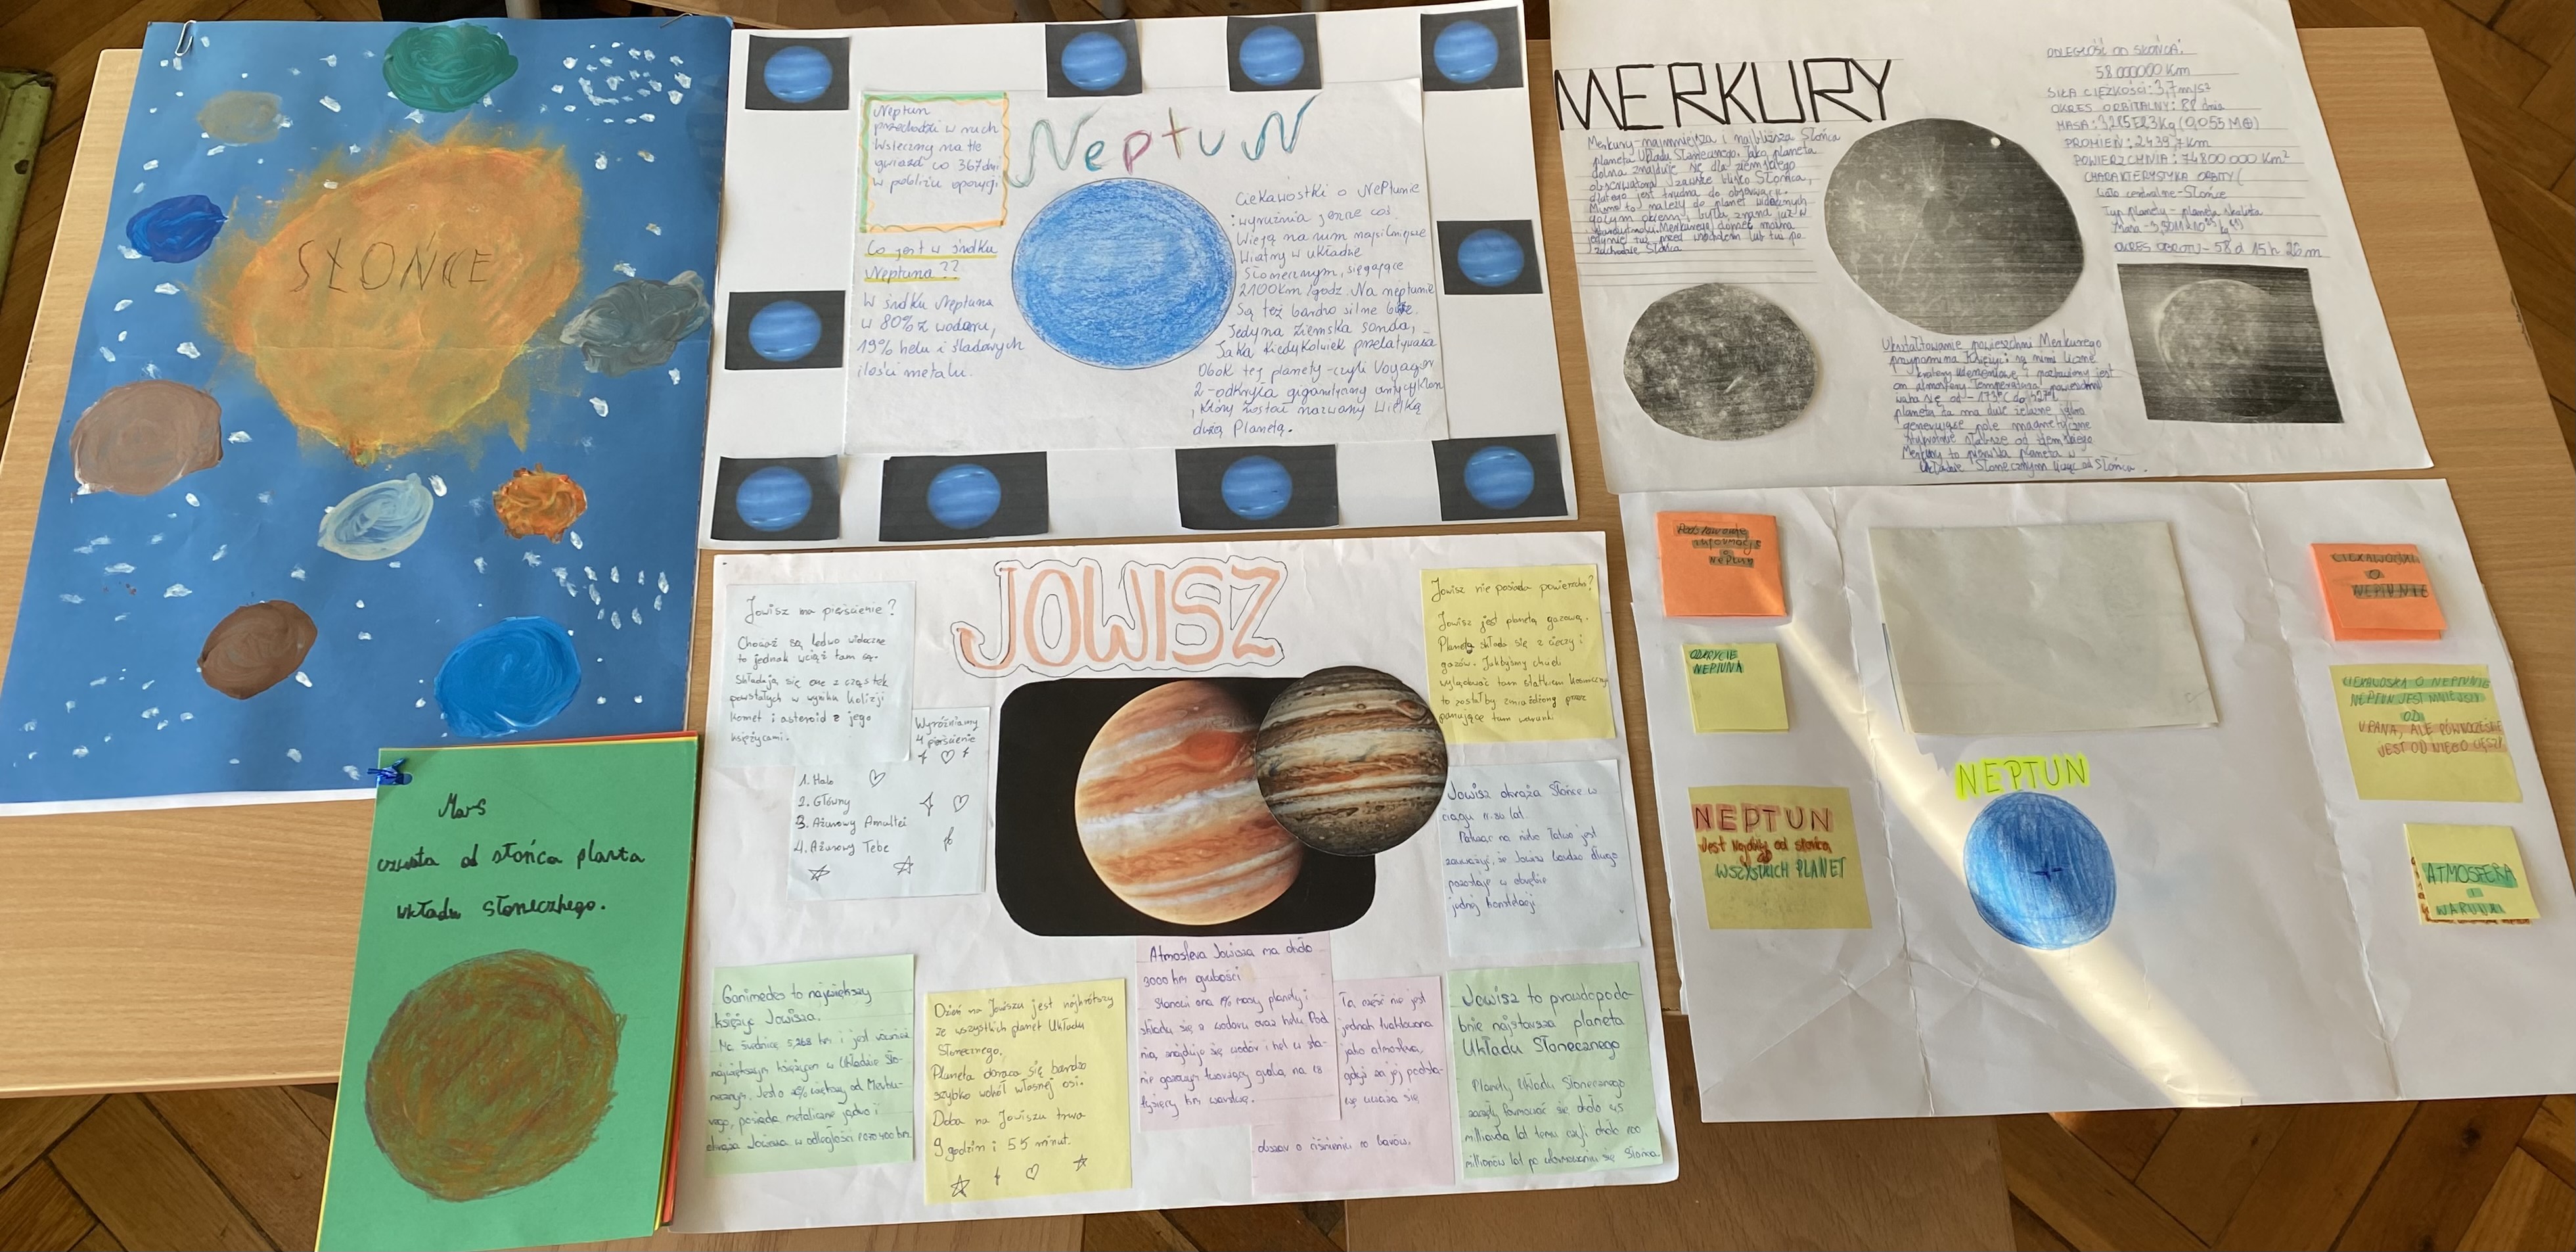 SŁOŃCE
Neptun
Neptun
przechodzi w ruch
wsteczny na tle
gwiazd co 367 dni
w pobliżu opozycji
Co jest w środku
Neptuna??
W środku Neptuna
w 80% z wodoru,
19% helu i śladowych
ilości metanu.
Ciekawostki o Neptunie
wyróżnia jeszcze coś.
Wieją na nim najsilniejsze
Wiatry w układzie
Słonecznym, sięgające
2100km/godz. Na neptunie
Są też bardzo silne
Jedyna ziemska sonda,
Jaka kiedykolwiek przelatywała
Obok tej planety-czyli Voyager
2-odkryła gigantyczny antycyklon
, który został nazwany Wielką
dużą Planetą.
MERKURY
Merkury-najmniejsza i najbliższa Słońca
planeta Układu Słonecznego. Jako planeta
dolna znajduje się dla ziemskiego
obserwatora zawsze blisko Słońca,
dlatego jest trudna do obserwacji.
Mimo to należy do planet widocznych
gołym okiem i była znana już w
ODLEGŁOŚĆ OD SŁOŃCA:
58 000000 Km
SIŁA CIĘŻKOŚCI: 3,7m/s²
OKRES ORBITALNY: 88 dnia
MASA: 3,285E23Kg (0,055 M⊕)
PROMIEŃ: 2439,7Km
POWIERZCHNIA: 74800 000 Km²
CHARAKTERYSTYKA ORBITY(
Ciało centralne-Słońce
Typ planety - planeta skalista
OKRES OBROTU-58 d 15 h 26 m
Ukształtowanie powierzchni Merkurego
przypomina Księżyc: są nimi liczne
kratery uderzeniowe i pozbawiony jest
on atmosfery Temperatura powierzchni
waha się od -173°C do 427°C
planeta ta ma duże żelazne jądro
generujące pole magnetyczne
Merkury to pierwsza planeta w
Układzie Słonecznym licząc od Słońca.
JOWISZ
Jowisz ma pierścienie?
Chociaż są ledwo widoczne
to jednak wciąż tam są.
Składają się one z cząstek
powstałych w wyniku kolizji
komet i asteroid z jego
księżycami.
Wyróżniamy
4 pierścienie
1. Halo
2. Główny
3. Ażurowy Amaltei
4. Ażurowy Tebe
Jowisz nie posiada powierzchni?
Jowisz jest planetą gazową.
Planeta składa się z cieczy i
gazów. Jakbyśmy chcieli
wylądować tam statkiem kosmicznym
to zostałby zmiażdżony przez
panujące tam warunki
Jowisz okrąża Słońce w
ciągu 11.86 lat.
Patrząc na niebo łatwo jest
zauważyć, że Jowisz bardzo długo
pozostaje w obrębie
jednej konstelacji
Ganimedes to największy
księżyc Jowisza.
Ma średnicę 5,268 km i jest również
największym księżycem w Układzie Sło-
necznym. Jest o 8% większy od Merku-
rego, posiada metaliczne jądro i
okrąża Jowisza w odległości 1070400 km.
Dzień na Jowiszu jest najkrótszy
ze wszystkich planet Układu
Słonecznego.
Planeta obraca się bardzo
szybko wokół własnej osi.
Doba na Jowiszu trwa
9 godzin i 55 minut.
Atmosfera Jowisza ma około
5000 km grubości
Stanowi ona 1% masy planety i
składa się z wodoru oraz helu. Pod
nią, znajduje się wodór i hel w sta-
To, część nie jest
jednak traktowana
jako atmosfera,
gdyż za jej podsta-
wę uważa się
obszar o ciśnieniu 10 barów.
Jowisz to prawdopodo-
bnie najstarsza planeta
Układu Słonecznego
Planety Układu Słonecznego
zaczęły formować się około 4,5
miliarda lat temu czyli około 100
milionów lat po uformowaniu się Słońca.
Mars
czwarta od słońca planta
układu słonecznego.
Podstawowe
informacje
o
Neptunie
ODKRYCIE
NEPTUNA
NEPTUN
Jest Najdalej od słońca
ze
WSZYSTKICH PLANET
NEPTUN
CIEKAWOSTKI
O
NEPTUNIE
CIEKAWOSKA O NEPTUNIE
NEPTUN JEST MNIEJSZY
OD
URANA, ALE RÓWNOCZEŚNIE
JEST OD NIEGO CIĘŻSZY
ATMOSFERA
I
WARUNKI